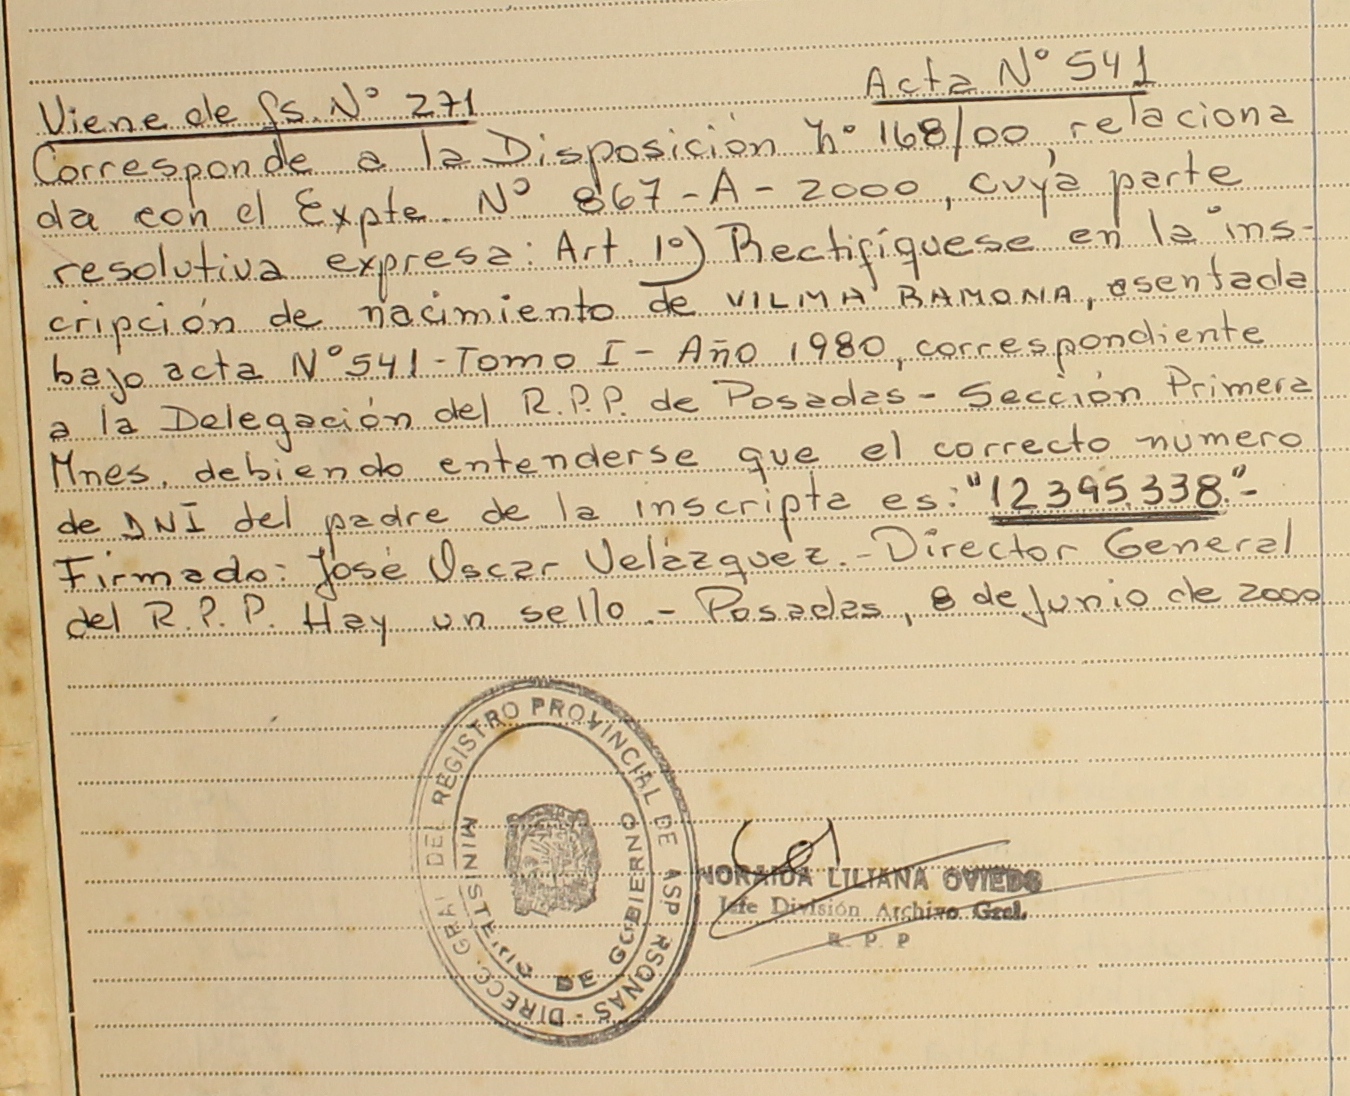 Viene de fs. N° 271
Acta N° 541
Corresponde a la Disposición N° 168/00, relaciona
da con el Expte. N° 867-A-2000, cuya parte
resolutiva expresa: Art. 1°) Rectifíquese en la ins-
cripción de nacimiento de VILMA RAMONA, asentada
bajo acta N° 541-Tomo I- Año 1980, correspondiente
a la Delegación del R.P.P. de Posadas - Sección Primera
Mnes. debiendo entenderse que el correcto numero
de DNI del padre de la inscripta es: "12.395.338."-
Firmado: José Oscar Velázquez. - Director General
del R.P.P. Hay un sello. - Posadas, 8 de Junio de 2000
DIRECC. GRAL DEL REGISTRO PROVINCIAL DE ASP RSONAS -
MINISTERIO DE GOBIERNO
NORAIDA LILIANA OVIEDO
Jefe División Archivo Gral.
R. P. P